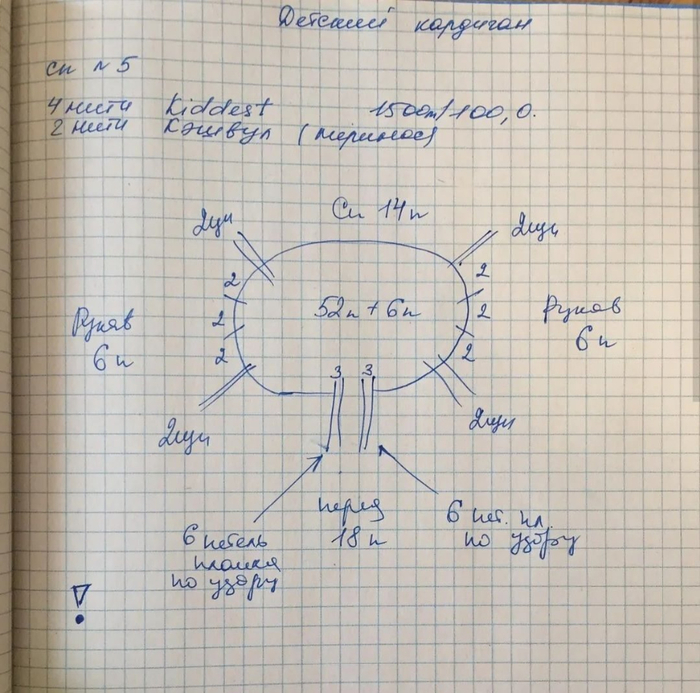 Детский кардиган
сп № 5
4 нити Kiddest 1500m/100,0.
2 нити Кэшвул (меринос)
Сп 14п
2ци
2ци
2
2
52п + 6п
2
2
Рукав
6п
Рукав
6п
2
2
3 3
2ци
2ци
перед
18п
6 петель
планка
по узору
6 пет. пл.
по узору
!